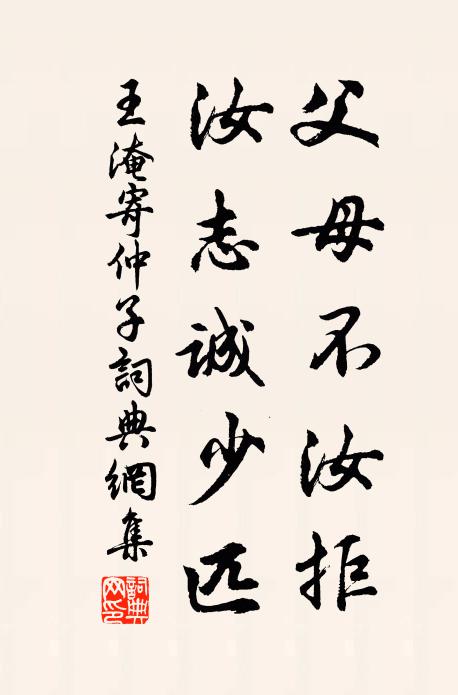 父母不汝拒
汝志誠少匹
王淹寄仲子詞典網集
詞典網印